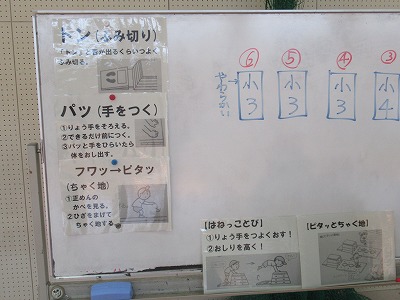 トン(ふみ切り)
「トン」と音が出るくらいつよく
ふみ切る。
パッ(手をつく)
①りょう手をそろえる。
②できるだけ前につく。
③パッと手をひらいたら
体をおし出す。
フワッ→ピタッ
(ちゃく地)
①正めんの
かべを見る。
②ひざをまげて
ちゃく地する。
⑥
⑤
④
③
やわらかい
小3
小3
小3
小4
【はねっことび】
①りょう手をつよくおす！
②おしりを高く！
【ピタッとちゃく地】